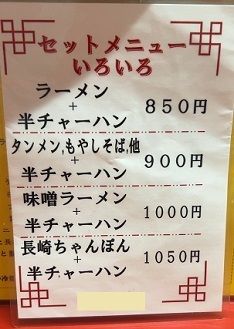 セットメニュー
いろいろ
ラーメン
+
半チャーハン
850円
タンメン,もやしそば,他
+
半チャーハン
900円
味噌ラーメン
+
半チャーハン
1000円
長崎ちゃんぽん
+
半チャーハン
1050円